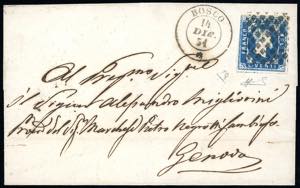 BOSCO
14
DIC.
54
Al Pregmo Sigr
il Signor Alessandro Migliorini
del Sigr Marchese Pietro Negrotti Cambiaso
Genova